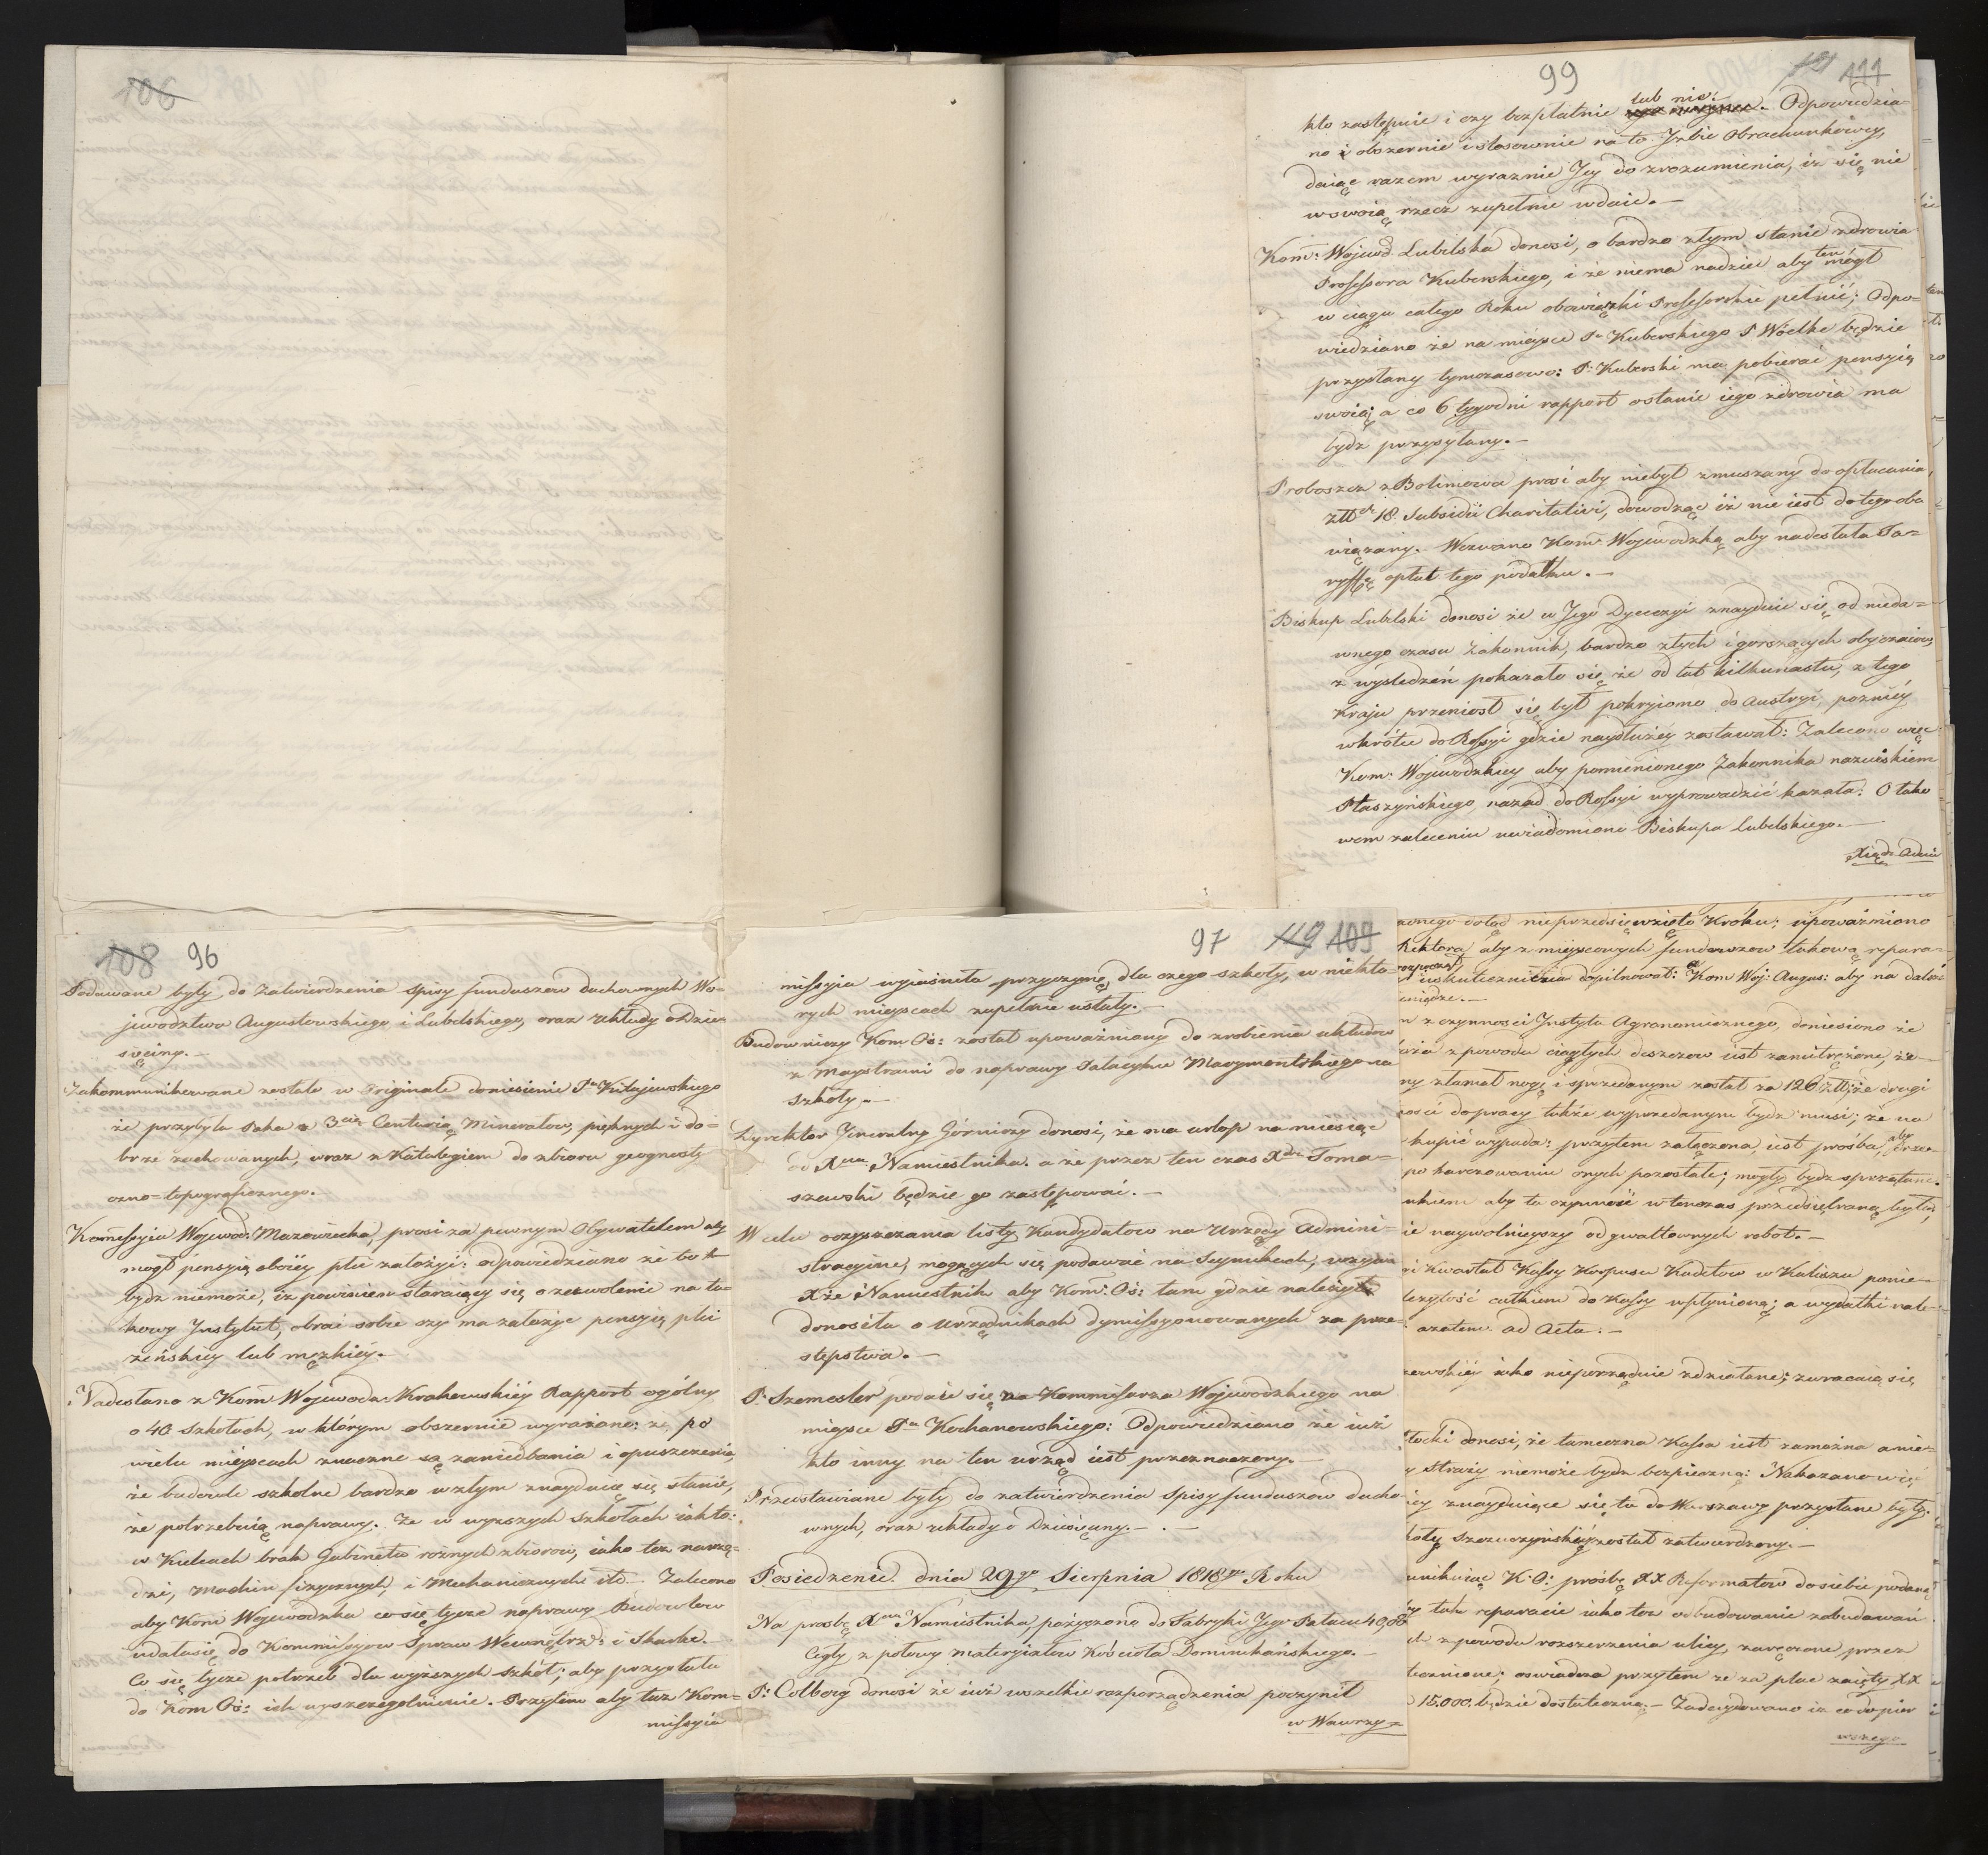 106
99
121 111
kto zastępuie i czy bezpłatnie lub nie. Odpowiedzia-
no i obszernie i stosownie na to Izbie Obrachunkowey,
daiąc razem wyraznie Jey do zrozumienia, iż się nie
w swoią rzecz zupełnie wdaie. –
Kom: Wojewd Lubelska donosi, o bardzo złym stanie zdrowia
Professora Kuberskiego, i że niema nadziei aby ten mógł
w ciągu całego Roku obowiązki Professorskie pełnić; Odpo=
wiedziano że na mieysce Pa Kuberskiego P Woelke będzie
przysłany tymczasowo: P. Kuberski ma pobierać pensyią
swoią; a co 6 tygodni rapport o stanie iego zdrowia ma
bydz przysyłany. –
Proboszcz z Bolimowa prosi aby niebył zmuszany do opłacania
złł 18 Subsidii Charitativi, dowodząc iż nie iest do tego obo
wiązany. – Wezwano Kom Wojewodzką aby nadesłała Ta=
ryffę opłat tego podatku. –
Biskup Lubelski donosi że w Jego Dyecezyi znayduie się od nieda=
wnego czasu Zakonnik, bardzo złych i gorszących obyczaiow,
z wysledzeń pokazało się że od lat kilkunastu, z tego
kraju przeniosł się był pokryiomo do Austryi, pozniéy
wkrótce do Rossyi gdzie naydłużéy zostawał: Zalecono więc
Kom: Wojewodzkiey aby pomienionego Zakonnika nazwiskiem
Ptaszyńskiego, nazad do Rossyi wyprowadzić kazała: O tako
wem zaleceniu uwiadomiono Biskupa Lubelskiego. –
Xiądz Adam
108 96
Podawane były do Zatwierdzenia Spisy funduszow duchownych Wo=
jewodztwa Augustowskiego i Lubelskiego, oraz układy o Dzie=
sięciny. –
Zakommunikowane zostało w Originale doniesienie Pa Kitajewskiego
że przybyła Paka z 3cią Centurią Minerałow, pięknych i do=
brze zachowanych, wraz z Katalogiem do zbioru geognosty
czno=topograficznego.
Kommissyia Wojewod: Mazowiecka, prosi za pewnym Obywatelem aby
mogł pensyią oboiey płci założyć: odpowiedziano że to
bydz niemoże, iż powinien staraiący się o zezwolenie na ta=
kowy Instytut, obrać sobie czy ma założyć pensyią płci
żeńskiey lub męzkiey. –
Nadesłano z Kom Wojewodz: Krakowskiéy Rapport ogólny
o 40 Szkołach, w którym obszernie wyrażono: że po
wielu mieyscach znaczne są zaniedbania i opuszczenia,
że budowle szkolne bardzo w złym znayduią się stanie,
że potrzebuią naprawy. Że w wyższych Szkołach iako to:
w Kielcach brak Gabinetu rożnych zbiorow, iako też narzę=
dzi, Machin fizycznych, i Mechanicznych itd. Zalecono
aby Kom Wojewodzka co się tycze naprawy Budowlow
udała się do Kommissyiow Spraw Wewnętrz: i Skarbu. –
Co się tycze potrzeb dla wyższych Szkół; aby przysłała
do Kom Oś: ich wyszczegolnienie. Przytem aby taż Kom=
missyia
97 119 109
missyia wyiaśniła przyczynę, dla czego szkoły, w niekto=
rych mieyscach zupełnie ustały. –
Budowniczy Kom Oś: został upoważniony do zrobienia układow
z Maystrami do naprawy Pałacyku Marymontskiego na
Szkoły. –
Dyrektor Jeneralny Górniczy donosi, że ma urlop na miesiąc
od Xcia Namiestnika. a że przez ten czas Xdz Toma=
szewski będzie go zastępować. –
W celu oczyszczania listy Kandydatow na Urzędy Admini=
stracyine, mogących się podawać na Seymikach, wzywa
Xże Namiestnik aby Kom: Oś: tam gdzie należy
donosiła o Urzędnikach dymissyonowanych za prze=
stępstwa. –
P. Szemester podaie się na Kommissarza Wojewodzkiego na
mieysce Pa Kochanowskiego: Odpowiedziano że iuż
kto inny na ten urząd iest przeznaczony. –
Przedstawiane były do zatwierdzenia Spisy funduszow ducho
wnych, oraz układy o Dziesięciny. –
Posiedzenie dnia 29go Sierpnia 1818go Roku
Na prosbę Xcia Namiestnika, pożyczono do Fabryki Jego Pałacu 40,000
Cegły z połowy materyiałow Kościoła Dominikańskiego. –
P: Colberg donosi że iuż wszelkie rozporządzenia poczynił
w Wawrzy=
dotąd nieprzedsięwzięto Kroku; upoważniono
Rektora, aby z mieyscowych funduszow takową repara=
uskutecznienia dopilnował: a Kom Woj: Augus: aby na dalsz
z czynności Instytu Agronomicznego, doniesiono że
z powodu ciągłych deszczow iest zamitrężone, że
złamał nogę i sprzedanym został za 126 złł; że drugi
do pracy także wyprzedanym bydz musi; że na
kupić wypada: przytem załączona iest prośba, aby drze=
po karczowaniu onych pozostałe; mogły bydz sprzątane.
aby ta czynność wtenczas przedsiębraną była,
ie naywolnieyszy od gwałtownych robot. –
Kwartał Kassy Korpusu Kadetow w Kaliszu ponie=
całkiem do Kassy wpłynioną; a wydatki nale=
ad Acta. –
iako nieporządnie zdziałane; zwracaią się
donosi, że tameczna Kassa iest zamożna a nie=
Straży niemoże bydz bezpieczną: Nakazano więc
znayduiące się tu do Warszawy przysłane były.
Szczuczyńskiéy został zatwierdzony. –
K. O: prośbę XX Reformatow do siebie podaną
tak reparacie iako też odbudowanie zabudowań
z powodu rozszerzenia ulicy, zaręczone przez
oswiadcza przytem że za plac zaięty XX
15,000. będzie dostateczną. – Zadecydowano iż co do pier
wszego